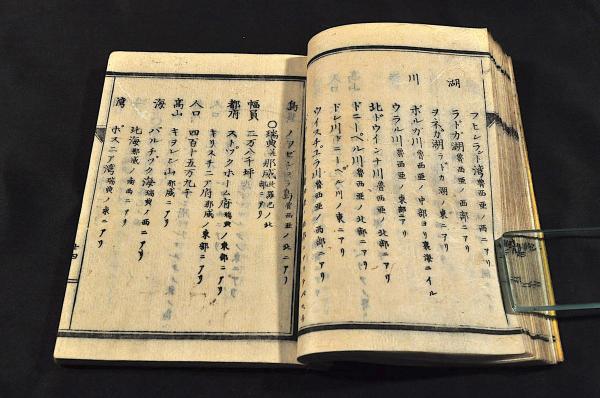 フヒンランド湾魯西亜ノ西ニアリ
湖
ラドガ湖魯西亜ノ西部ニアリ
ヲネガ湖ラドガ湖ノ東ニアリ
川
ボルガ川魯西亜ノ中部ヨリ裏海ニイル
ウラル川魯西亜ノ東部ニアリ
北ドウインナ川魯西亜ノ北部ニアリ
ドニーペル川魯西亜ノ南部ニアリ
ドン川ドニーペル川ノ東ニアリ
ウイスチュラ川魯西亜ノ西部ニアリ
島
魯西亜ノ北ニアリ
○瑞典及那威欧羅巴ノ北部ニアリ
幅員
二万八千坪
都府
ストックホーム府瑞典ノ東部ニアリ
キリスチニア府那威ノ東部ニアリ
人口
四百十五万九千
高山
キヨレン山那威ニアリ
海
バルチック海瑞典ノ東南ニアリ
北海那威ノ南西ニアリ
湾
ボスニア湾瑞典ノ東ニアリ